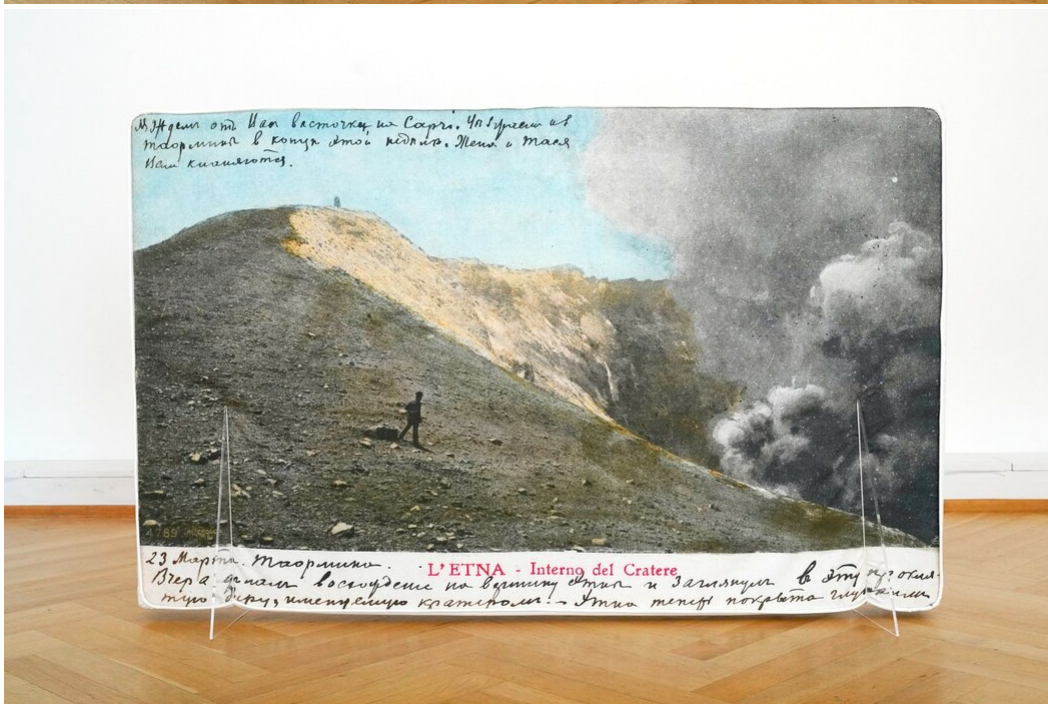 Ждемъ отъ Вас весточки на Capri. Уѣзжаем из
Таормины в конце этой недели. Жена и Тася
Вам кланяются.
1789
23 Марта. Таормина.
L'ETNA - Interno del Cratere
Вчера делалъ восхождение на вершину Этны и заглянулъ в эту прокля-
тую дыру, именуемую кратеромъ. - Этна теперь покрыта глубокими